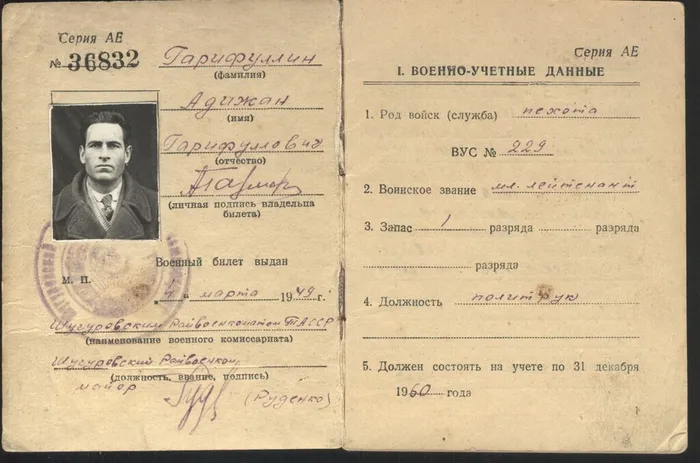 Серия АЕ
№ 36832
Гарифуллин
(фамилия)
Адижан
(имя)
Гарифуллович
(отчество)
(личная подпись владельца
билета)
Военный билет выдан
М. П.
„ “ марта 1949 г.
Шугуровским Райвоенкоматом ТАССР
(наименование военного комиссариата)
Шугуровский Райвоенком
(должность, звание, подпись)
майор
(Руденко)
Серия АЕ
I. ВОЕННО-УЧЕТНЫЕ ДАННЫЕ
1. Род войск (служба) пехота
ВУС № 229
2. Воинское звание мл. лейтенант
3. Запас 1 разряда разряда
разряда
4. Должность политрук
5. Должен состоять на учете по 31 декабря
1960 года